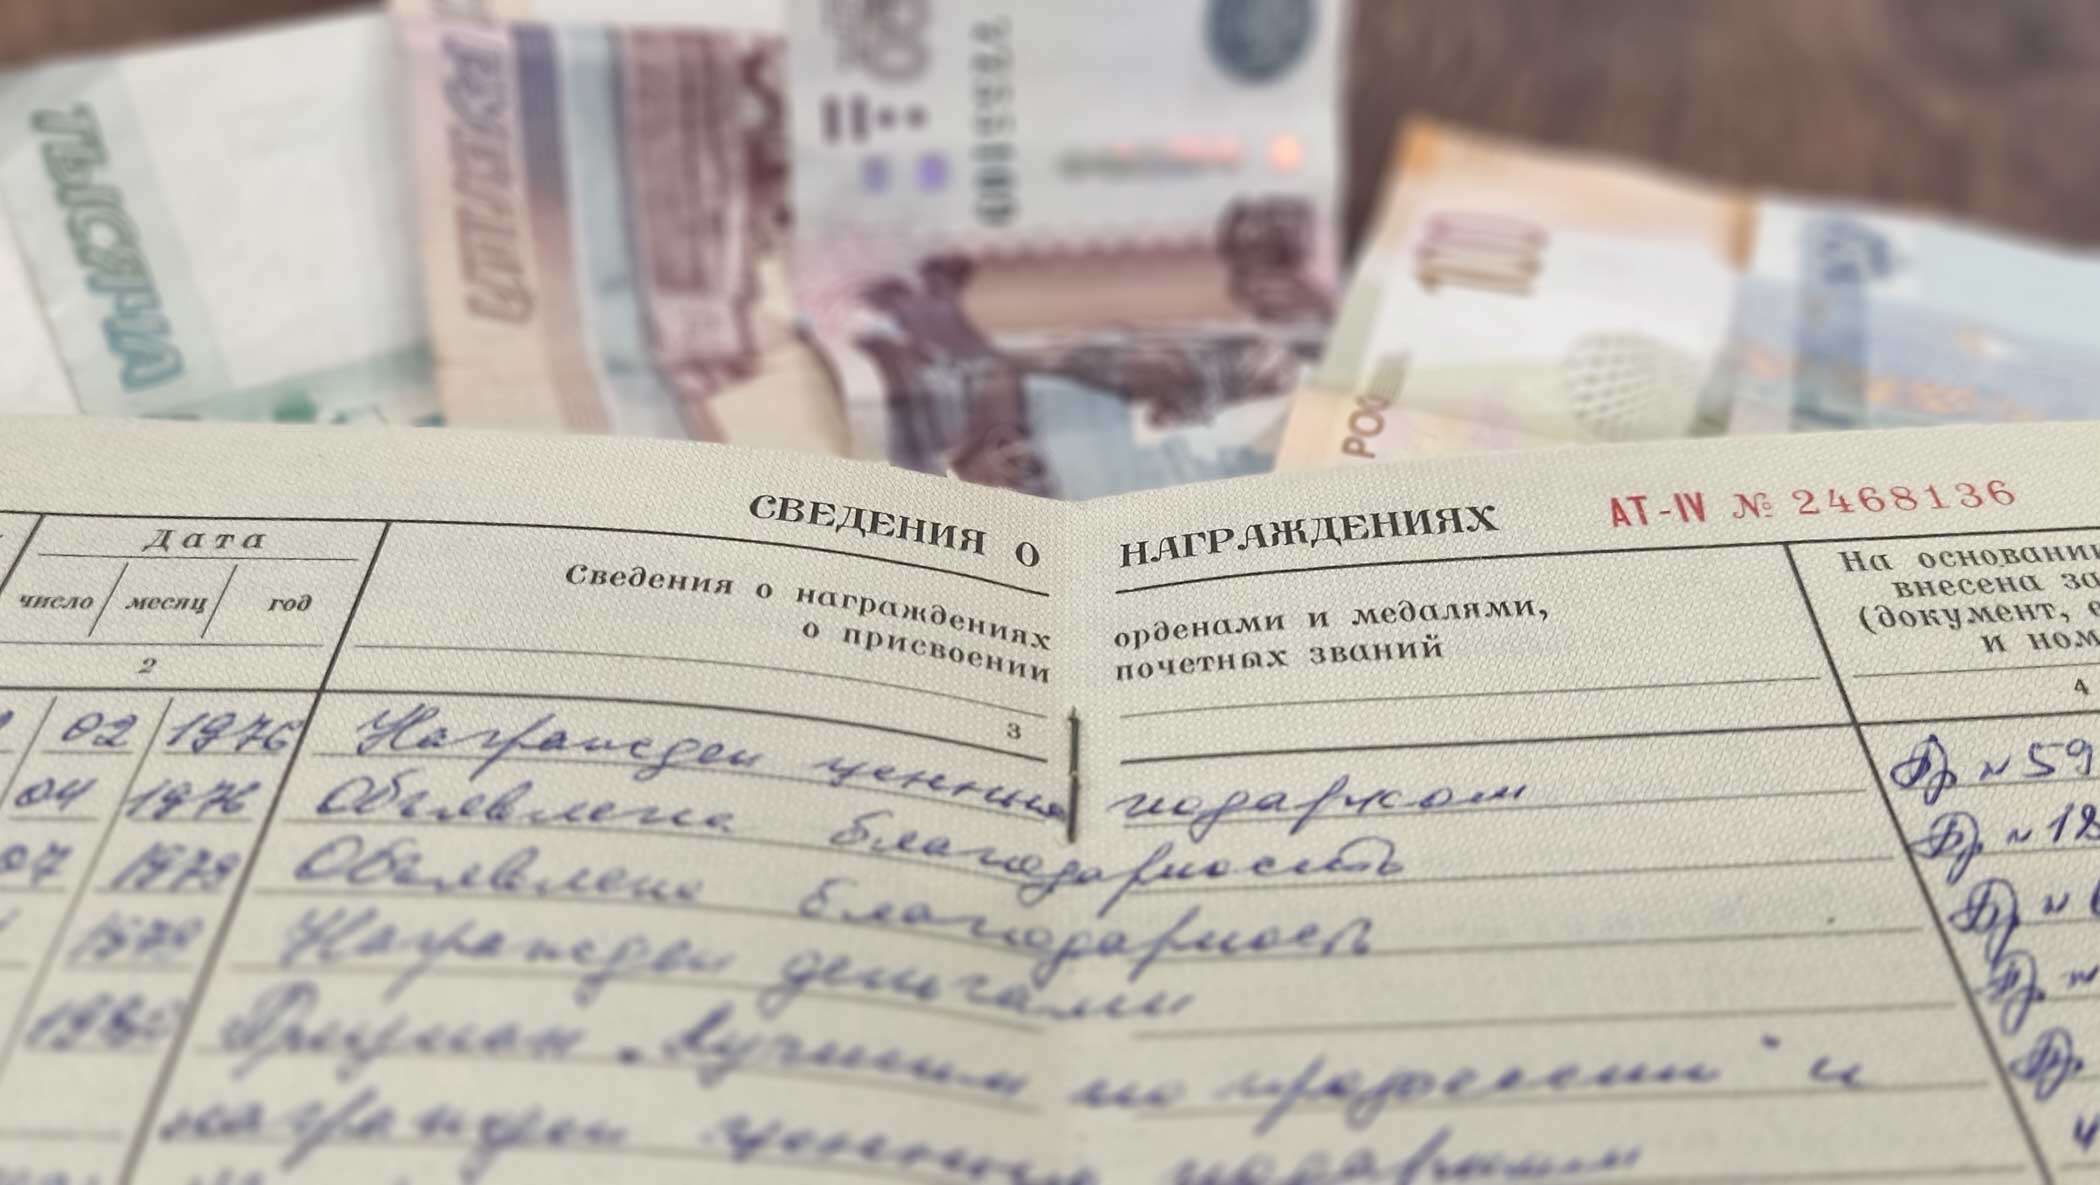 ТЫСЯЧА
РУБЛЕЙ
100
РОС
СВЕДЕНИЯ О НАГРАЖДЕНИЯХ
АТ-IV № 2468136
Дата
число месяц год
Сведения о награждениях орденами и медалями,
о присвоении почетных званий
На основании
внесена за
(документ,
и ном
2 3 4
02 1976 Награжден ценным подарком Пр № 59
04 1976 Объявлена благодарность Пр № 12
07 Объявлена благодарность Пр №
Награжден деньгами Пр №
Признан „Лучшим по профессии" и Пр.
награжден ценным подарком